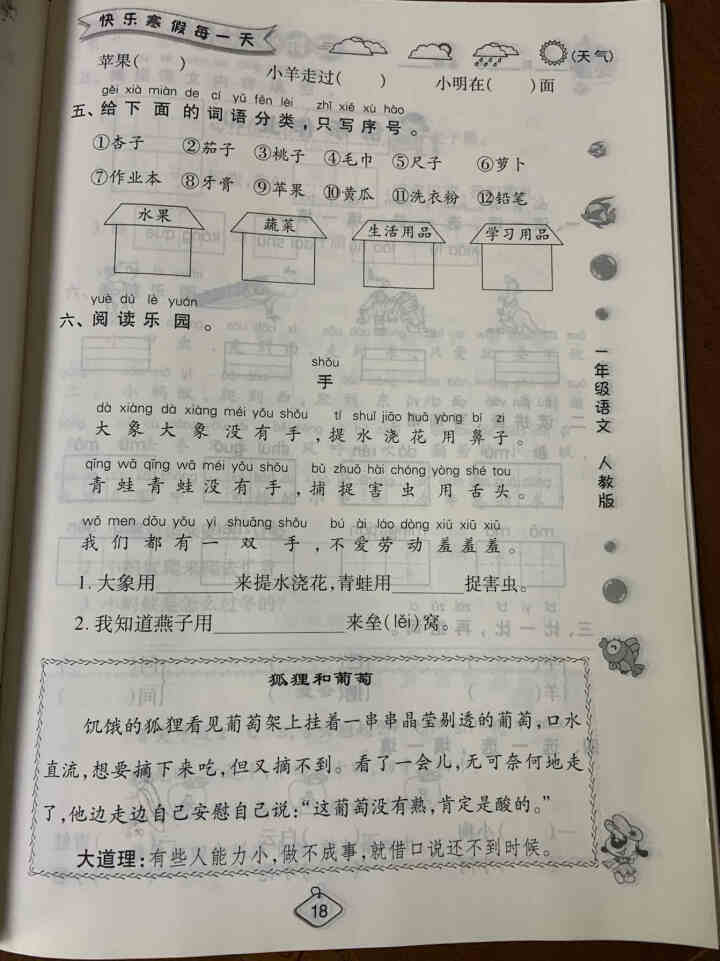 快乐寒假每一天
(天气)
苹果(    )
小羊走过(    )
小明在(    )面
gěi xià miàn de cí yǔ fēn lèi   zhǐ xiě xù hào
五、给下面的词语分类,只写序号。
①杏子 ②茄子 ③桃子 ④毛巾 ⑤尺子 ⑥萝卜
⑦作业本 ⑧牙膏 ⑨苹果 ⑩黄瓜 ⑪洗衣粉 ⑫铅笔
水果 蔬菜 生活用品 学习用品
yuè dú lè yuán
六、阅读乐园。
shǒu
手
dà xiàng dà xiàng méi yǒu shǒu   tí shuǐ jiāo huā yòng bí zi
大象大象没有手,提水浇花用鼻子。
qīng wā qīng wā méi yǒu shǒu   bǔ zhuō hài chóng yòng shé tou
青蛙青蛙没有手,捕捉害虫用舌头。
wǒ men dōu yǒu yì shuāng shǒu   bú ài láo dòng xiū xiū xiū
我们都有一双手,不爱劳动羞羞羞。
1. 大象用________来提水浇花,青蛙用________捉害虫。
2. 我知道燕子用______________来垒(lěi)窝。
狐狸和葡萄
饥饿的狐狸看见葡萄架上挂着一串串晶莹剔透的葡萄,口水
直流,想要摘下来吃,但又摘不到。看了一会儿,无可奈何地走
了,他边走边自己安慰自己说:“这葡萄没有熟,肯定是酸的。”
大道理:有些人能力小,做不成事,就借口说还不到时候。
18
一年级语文 人教版